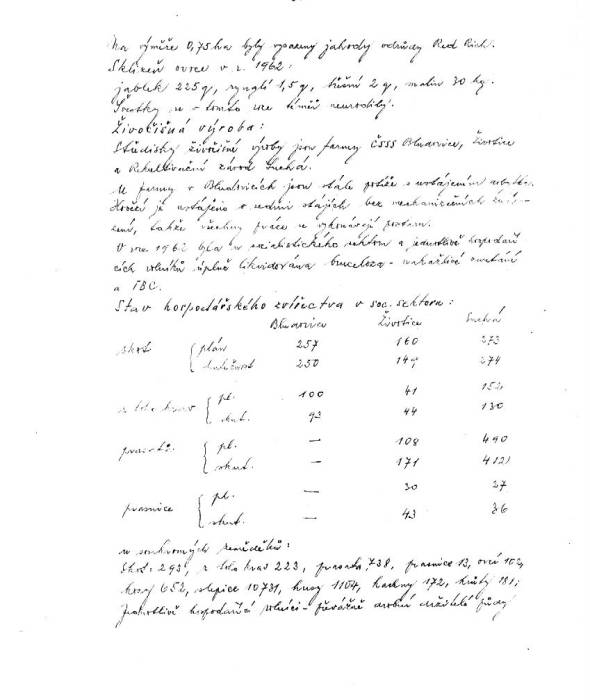 Na výměře 0,75 ha byly vysazeny jahody odrůdy Red Rich.
Sklizeň ovoce v r. 1962:
jablek 225 q, rynglí 1,5 q, třešní 2 q, malin 30 kg.
Švestky se - tomto roce téměř neurodily.
Živočišná výroba:
Středisky živočišné výroby jsou farmy ČSSS Bludovice, Životice
a Rekultivační závod Suchá.
U farmy v Bludovicích jsou stále potíže s ustájením
je ustájeno v sedmi stájích bez mechanizačních zaří-
zení, takže všechny práce se vykonávají
V roce 1962 byla v socialistickém sektoru a jednotlivě hospodaří
cích rolníků úplně likvidována bruceloza - nakažlivé zmetání
a TBC.
Stav hospodářského zvířectva v soc. sektoru:
Bludovice Životice Suchá
skot plán 257 160 273
skutečnost 250 149 274
z toho krav pl. 100 41 152
skut. 93 44 130
prasata pl. — 108 490
skut. — 171
prasnice pl. — 30 27
skut. — 43 36
u soukromých zemědělců:
Skot: 293, z toho krav 223, prasata 738, prasnice 13, ovcí 102,
kozy 652, slepice 10731, husy 1104, kachny 172, krůty 181;
Jednotlivě hospodařící rolníci - převážně drobní držitelé půdy